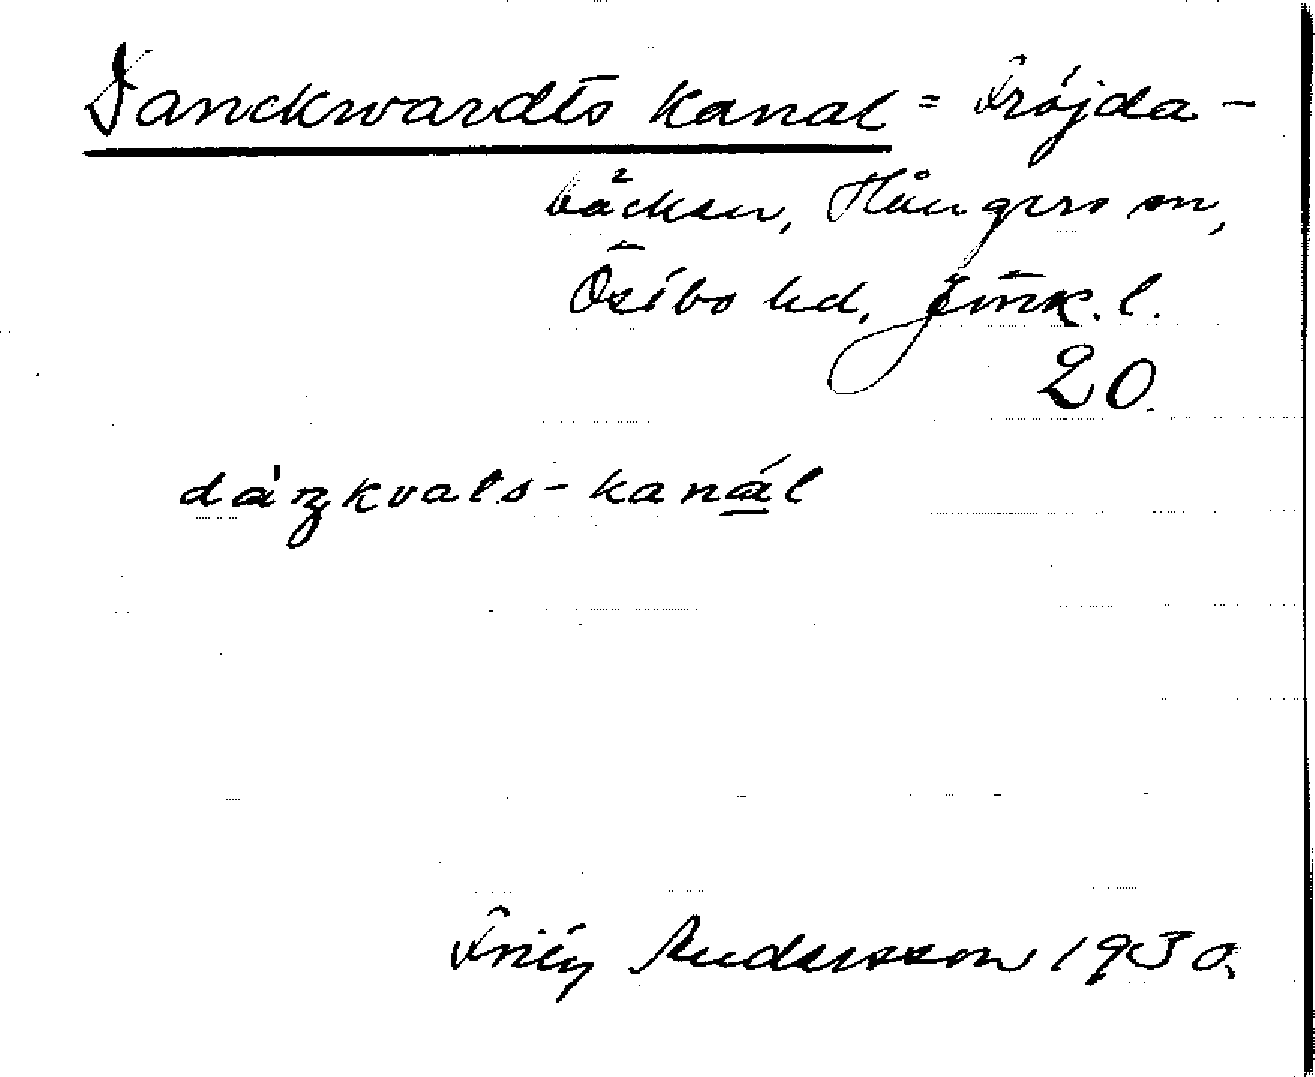 Danckwardts kanal = Fröjda-
bäcken, Hångers sn,
Östbo hd, Jönk. l.
20.
dáŋkvats-kanál
Frity Andersson 1930.